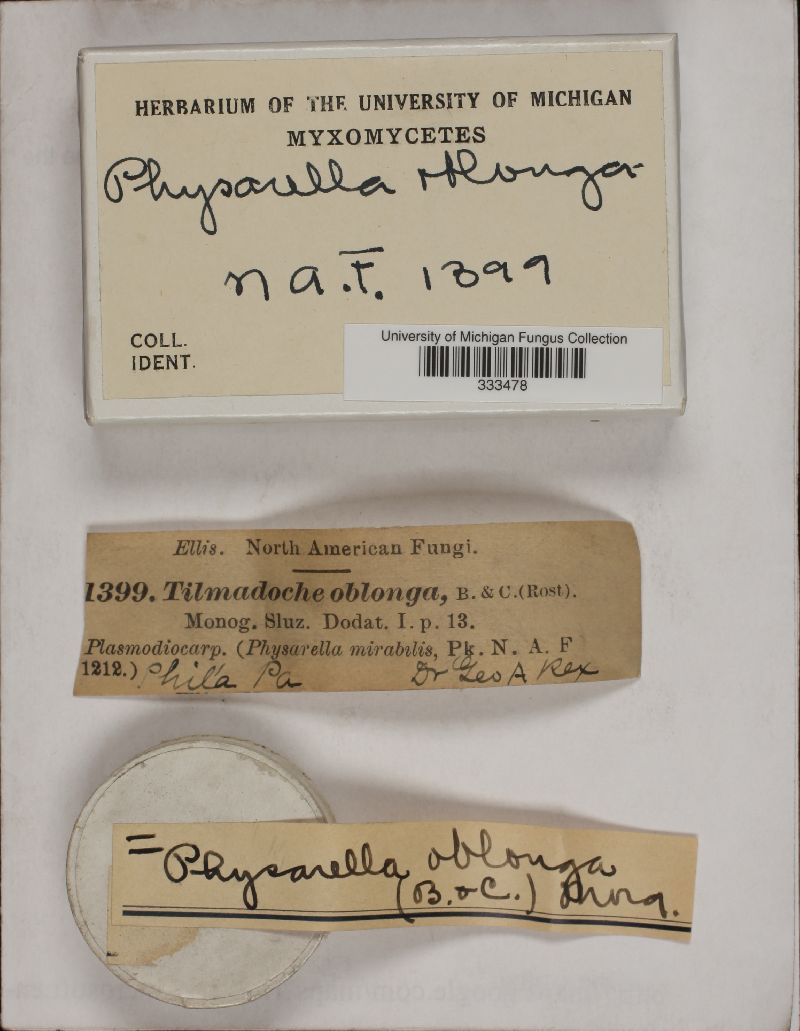 HERBARIUM OF THE UNIVERSITY OF MICHIGAN
MYXOMYCETES
Physarella oblonga
n a.F. 1399
COLL.
IDENT.
University of Michigan Fungus Collection
333478
Ellis. North American Fungi.
1399. Tilmadoche oblonga, B. & C.(Rost).
Monog. Sluz. Dodat. I. p. 13.
Plasmodiocarp. (Physarella mirabilis, Pk. N. A. F
1212.) Phila Pa Dr Geo A Rex
= Physarella oblonga
(B. & C.) Morg.